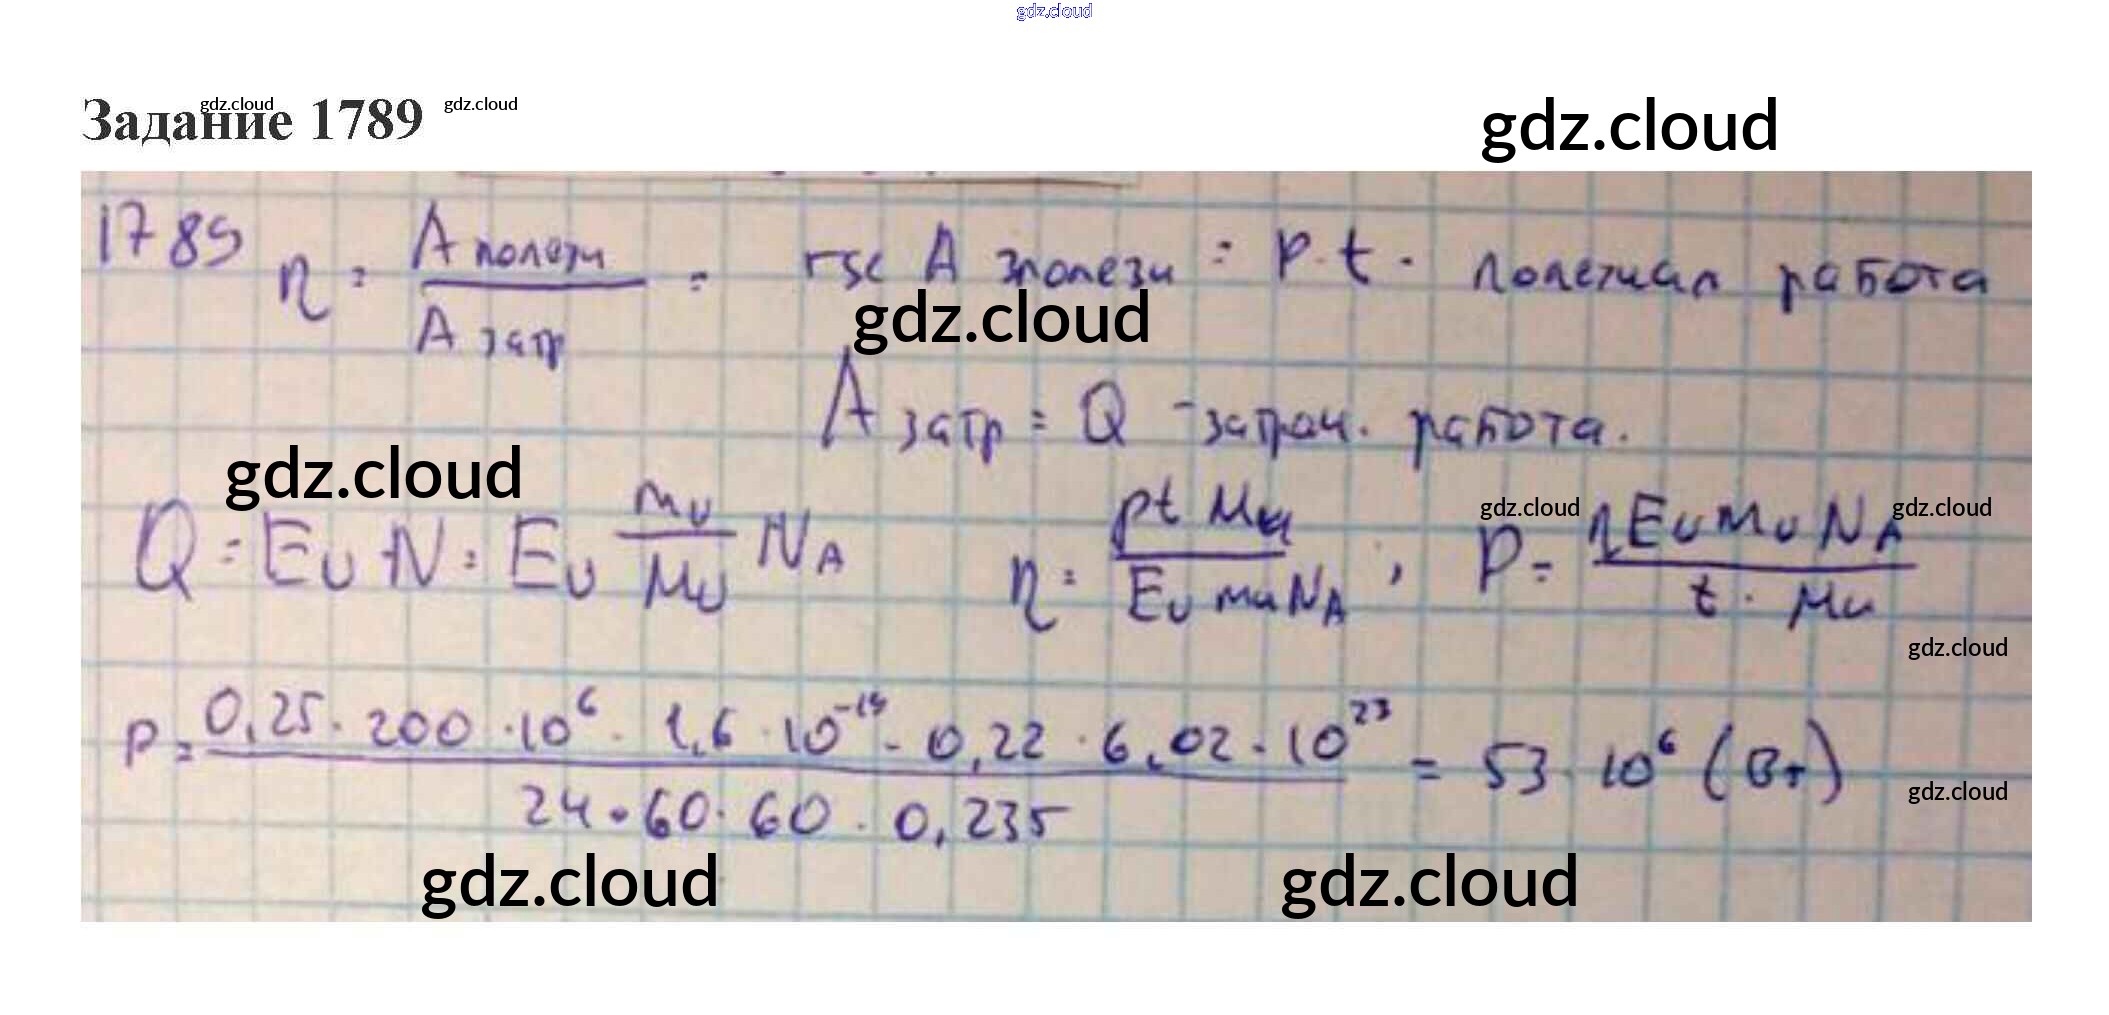 gdz.cloud
Задание 1789 gdz.cloud gdz.cloud
gdz.cloud
1789 η = A полезн / A затр = где A полезн = P·t · полезная работа
gdz.cloud
A затр = Q - затрач. работа.
gdz.cloud
Q = E_U · N = E_U m_U / M_U N_A η = pt M_u / E_U m_u N_A , P = η E_U m_U N_A / t · M_u
gdz.cloud gdz.cloud
gdz.cloud
P = 0,25 · 200 · 10⁶ · 1,6 · 10⁻¹⁹ · 0,22 · 6,02 · 10²³ / 24 · 60 · 60 · 0,235 = 53 · 10⁶ (Вт)
gdz.cloud
gdz.cloud gdz.cloud